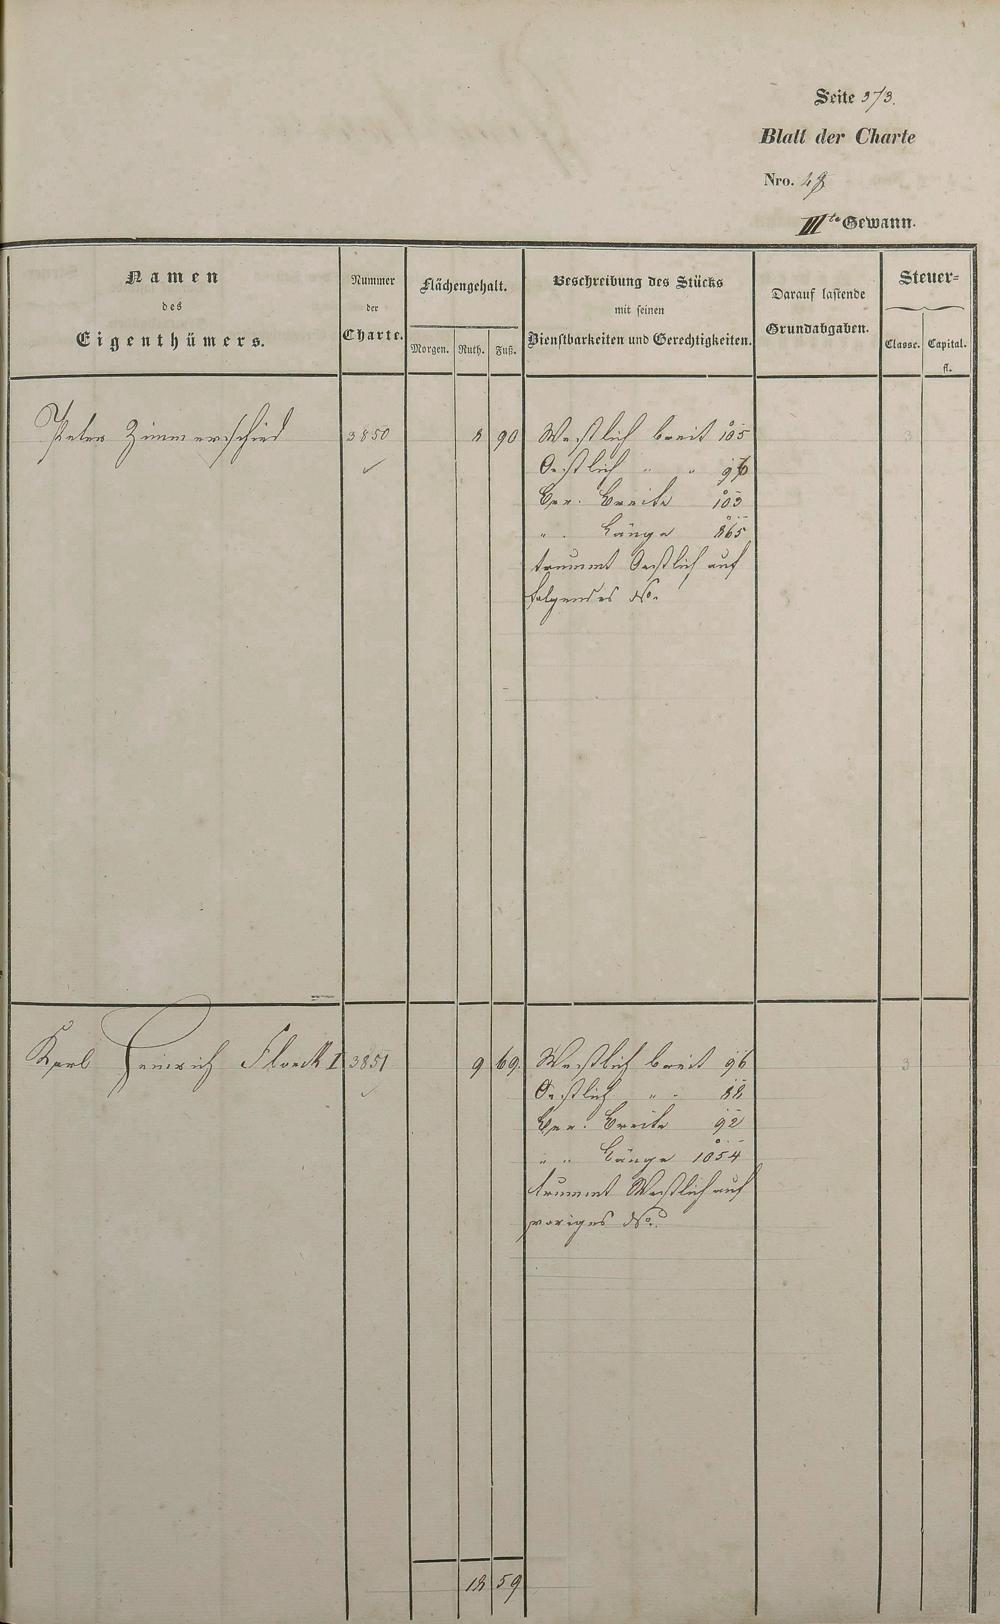 Seite 373.
Blatt der Charte
Nro. 48
III te Gewann.
Namen des Eigenthümers.
Nummer der Charte.
Flächengehalt.
Morgen. Ruth. Fuß.
Beschreibung des Stücks mit seinen Dienstbarkeiten und Gerechtigkeiten.
Darauf lastende Grundabgaben.
Steuer=
Classe. Capital. fl.
Peter Zimmerschied 3850 8 90 Westlich breit 105 3
Oestlich " " 96
Ver. Breite 103
" . Länge 865
trummt Oestlich auf
folgendes No.
Karl Heinrich Flöck I 3851 9 69. Westlich breit 96 3
Oestlich " " 88
Ver. Breite 92
" " Länge 1054
trummt Westlich auf
voriges No.
18 59